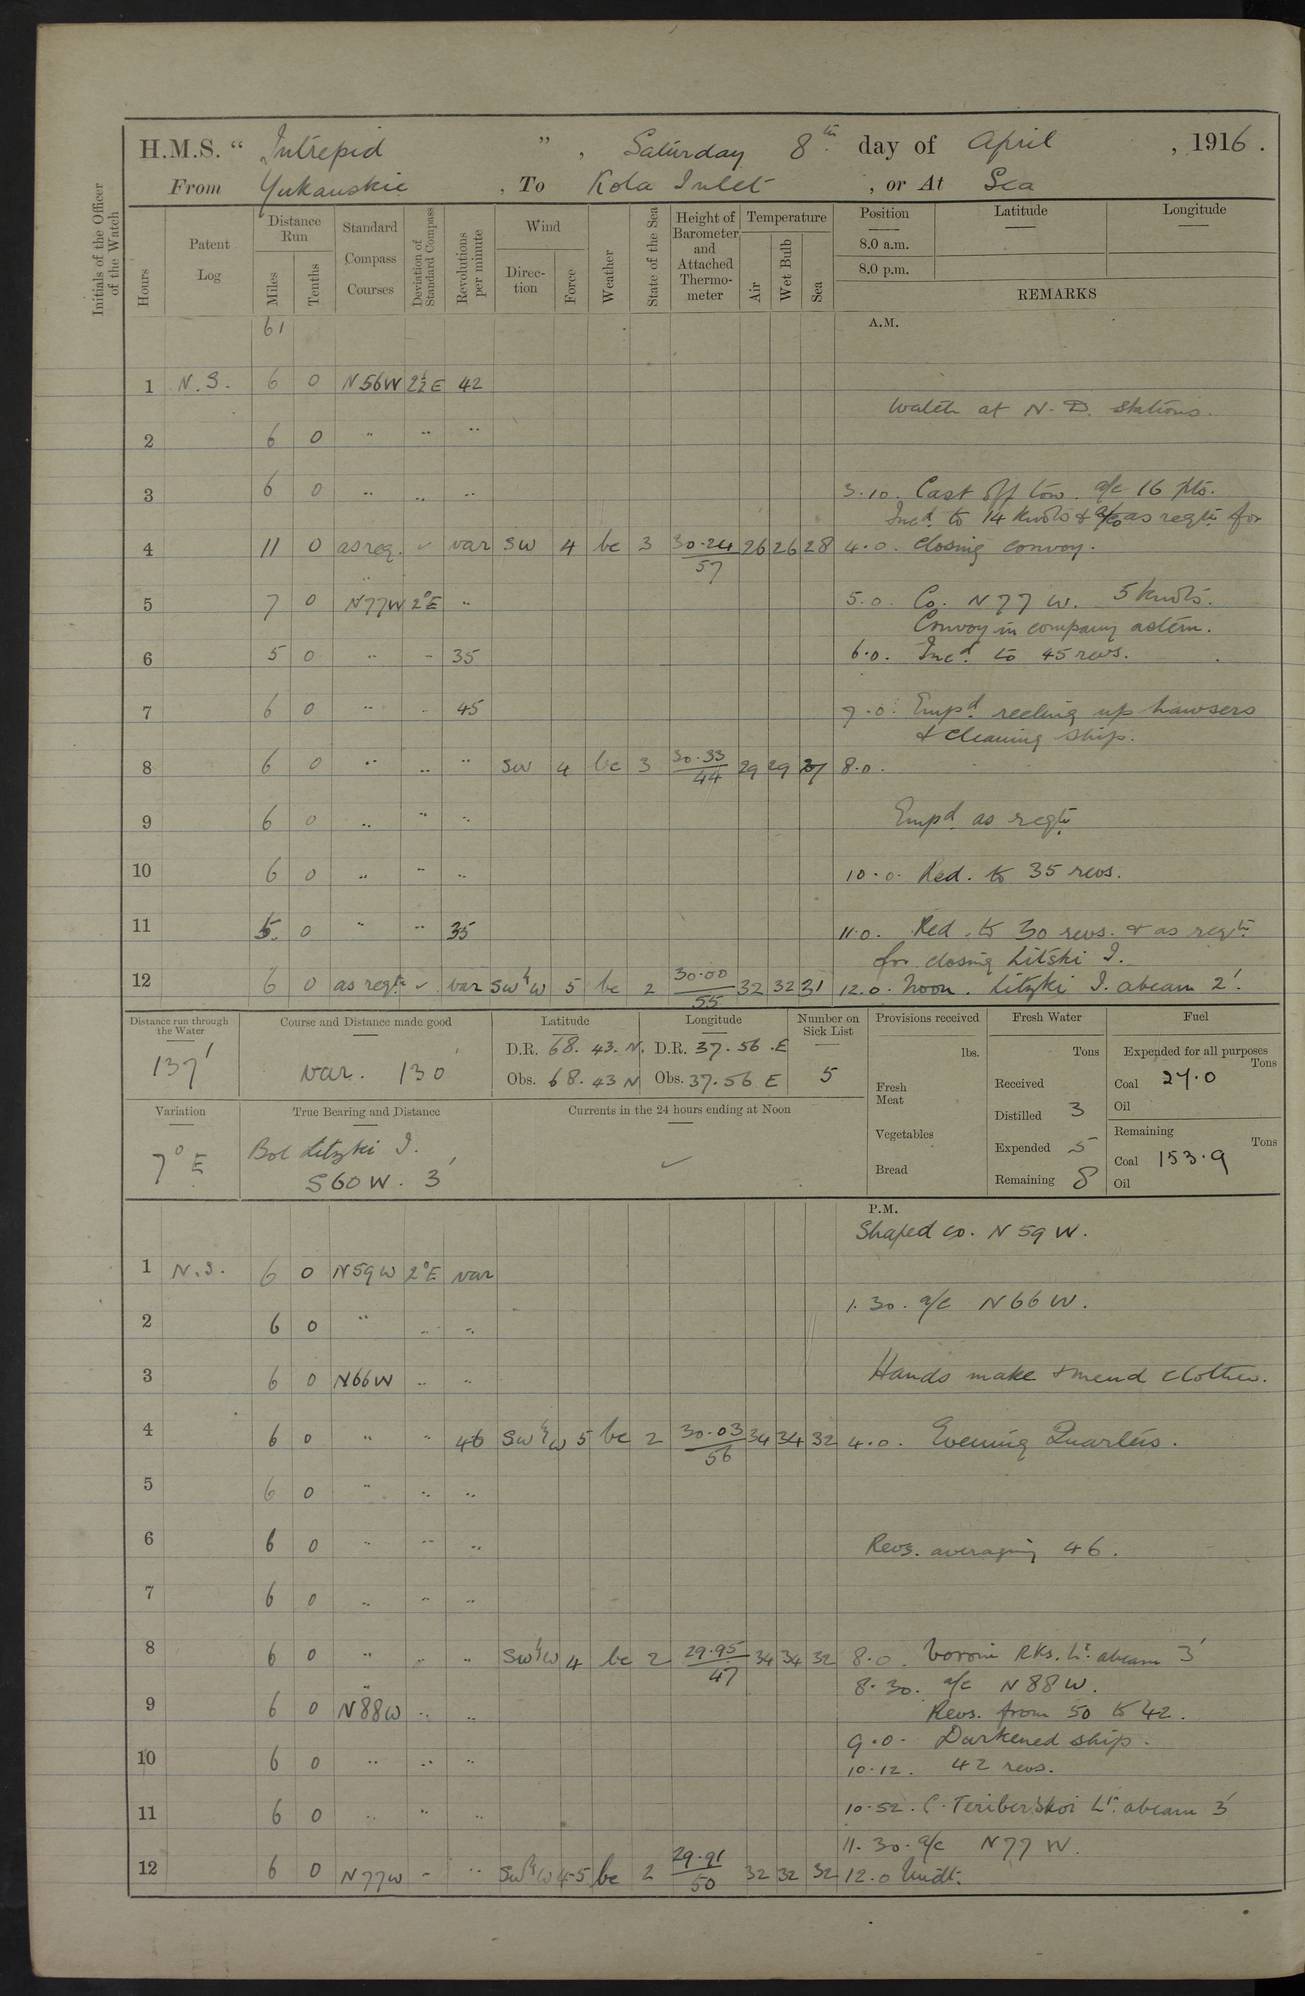 H.M.S. “ Intrepid ” , Saturday 8th day of April , 1916 .
From Yukanskie , To Kola Inlet , or At Sea
Initials of the Officer of the Watch
Hours Patent Log Distance Run Miles Tenths Standard Compass Courses Deviation of Standard Compass Revolutions per minute Wind Direction Force Weather State of the Sea Height of Barometer and Attached Thermometer Temperature Air Wet Bulb Sea Position Latitude Longitude
8.0 a.m.
8.0 p.m.
REMARKS
61 A.M.
1 N.S. 6 0 N56W 2½E 42
Watch at N.D. Stations.
2 6 0 " " "
3 6 0 " " " 3.10. Cast off tow. a/c 16 pts.
Incd. to 14 knots & a/co as reqte for
4 11 0 as req. ✓ var SW 4 bc 3 30.24/57 26 26 28 4.0. closing convoy.
5 7 0 N77W 2°E " 5.0. Co. N77W. 5 knots.
Convoy in company astern.
6 5 0 " " 35 6.0. Incd. to 45 revs.
7 6 0 " " 45 7.0. Empd. reeling up hawsers
& cleaning ship.
8 6 0 " " " SW 4 bc 3 30.33/44 29 29 37 8.0.
9 6 0 " " " Empd. as reqte
10 6 0 " " " 10.0. Red. to 35 revs.
11 5 0 " " 35 11.0. Red. to 30 revs. & as reqte
for closing Litski I.
12 6 0 as reqte ✓ var SW½W 5 bc 2 30.00/55 32 32 31 12.0. Noon. Litzki I. abeam 2'.
Distance run through the Water Course and Distance made good Latitude Longitude Number on Sick List Provisions received Fresh Water Fuel
137' var. 130'
D.R. 68. 43. N. D.R. 37. 56 .E
Obs. 68. 43 N Obs. 37. 56 E 5
lbs. Tons Expended for all purposes Tons
Fresh Meat Received Coal 27.0
Distilled 3 Oil
Variation True Bearing and Distance Currents in the 24 hours ending at Noon
Vegetables Expended 5 Remaining Tons
Bread Remaining 8 Coal 153.9
Oil
7°E Bol Litzki I.
S60W. 3' ✓
P.M.
Shaped co. N59W.
1 N.S. 6 0 N59W 2°E var
1.30. a/c N66W.
2 6 0 " " "
3 6 0 N66W " " Hands make & mend clothes.
4 6 0 " " 46 SW½W 5 bc 2 30.03/56 34 34 32 4.0. Evening Quarters.
5 6 0 " " "
6 6 0 " " " Revs. averaging 46.
7 6 0 " " "
8 6 0 " " " SW½W 4 bc 2 29.95/47 34 34 32 8.0. Voroni Rks. Lt. abeam 3'
8.30. a/c N88W.
9 6 0 N88W " " Revs. from 50 to 42.
9.0. Darkened ship.
10 6 0 " " " 10.12. 42 revs.
11 6 0 " " " 10.52. C. Teriberskoi Lt. abeam 3'
11.30. a/c N77W.
12 6 0 N77W " " SW½W 4-5 bc 2 29.91/50 32 32 32 12.0 Midt.